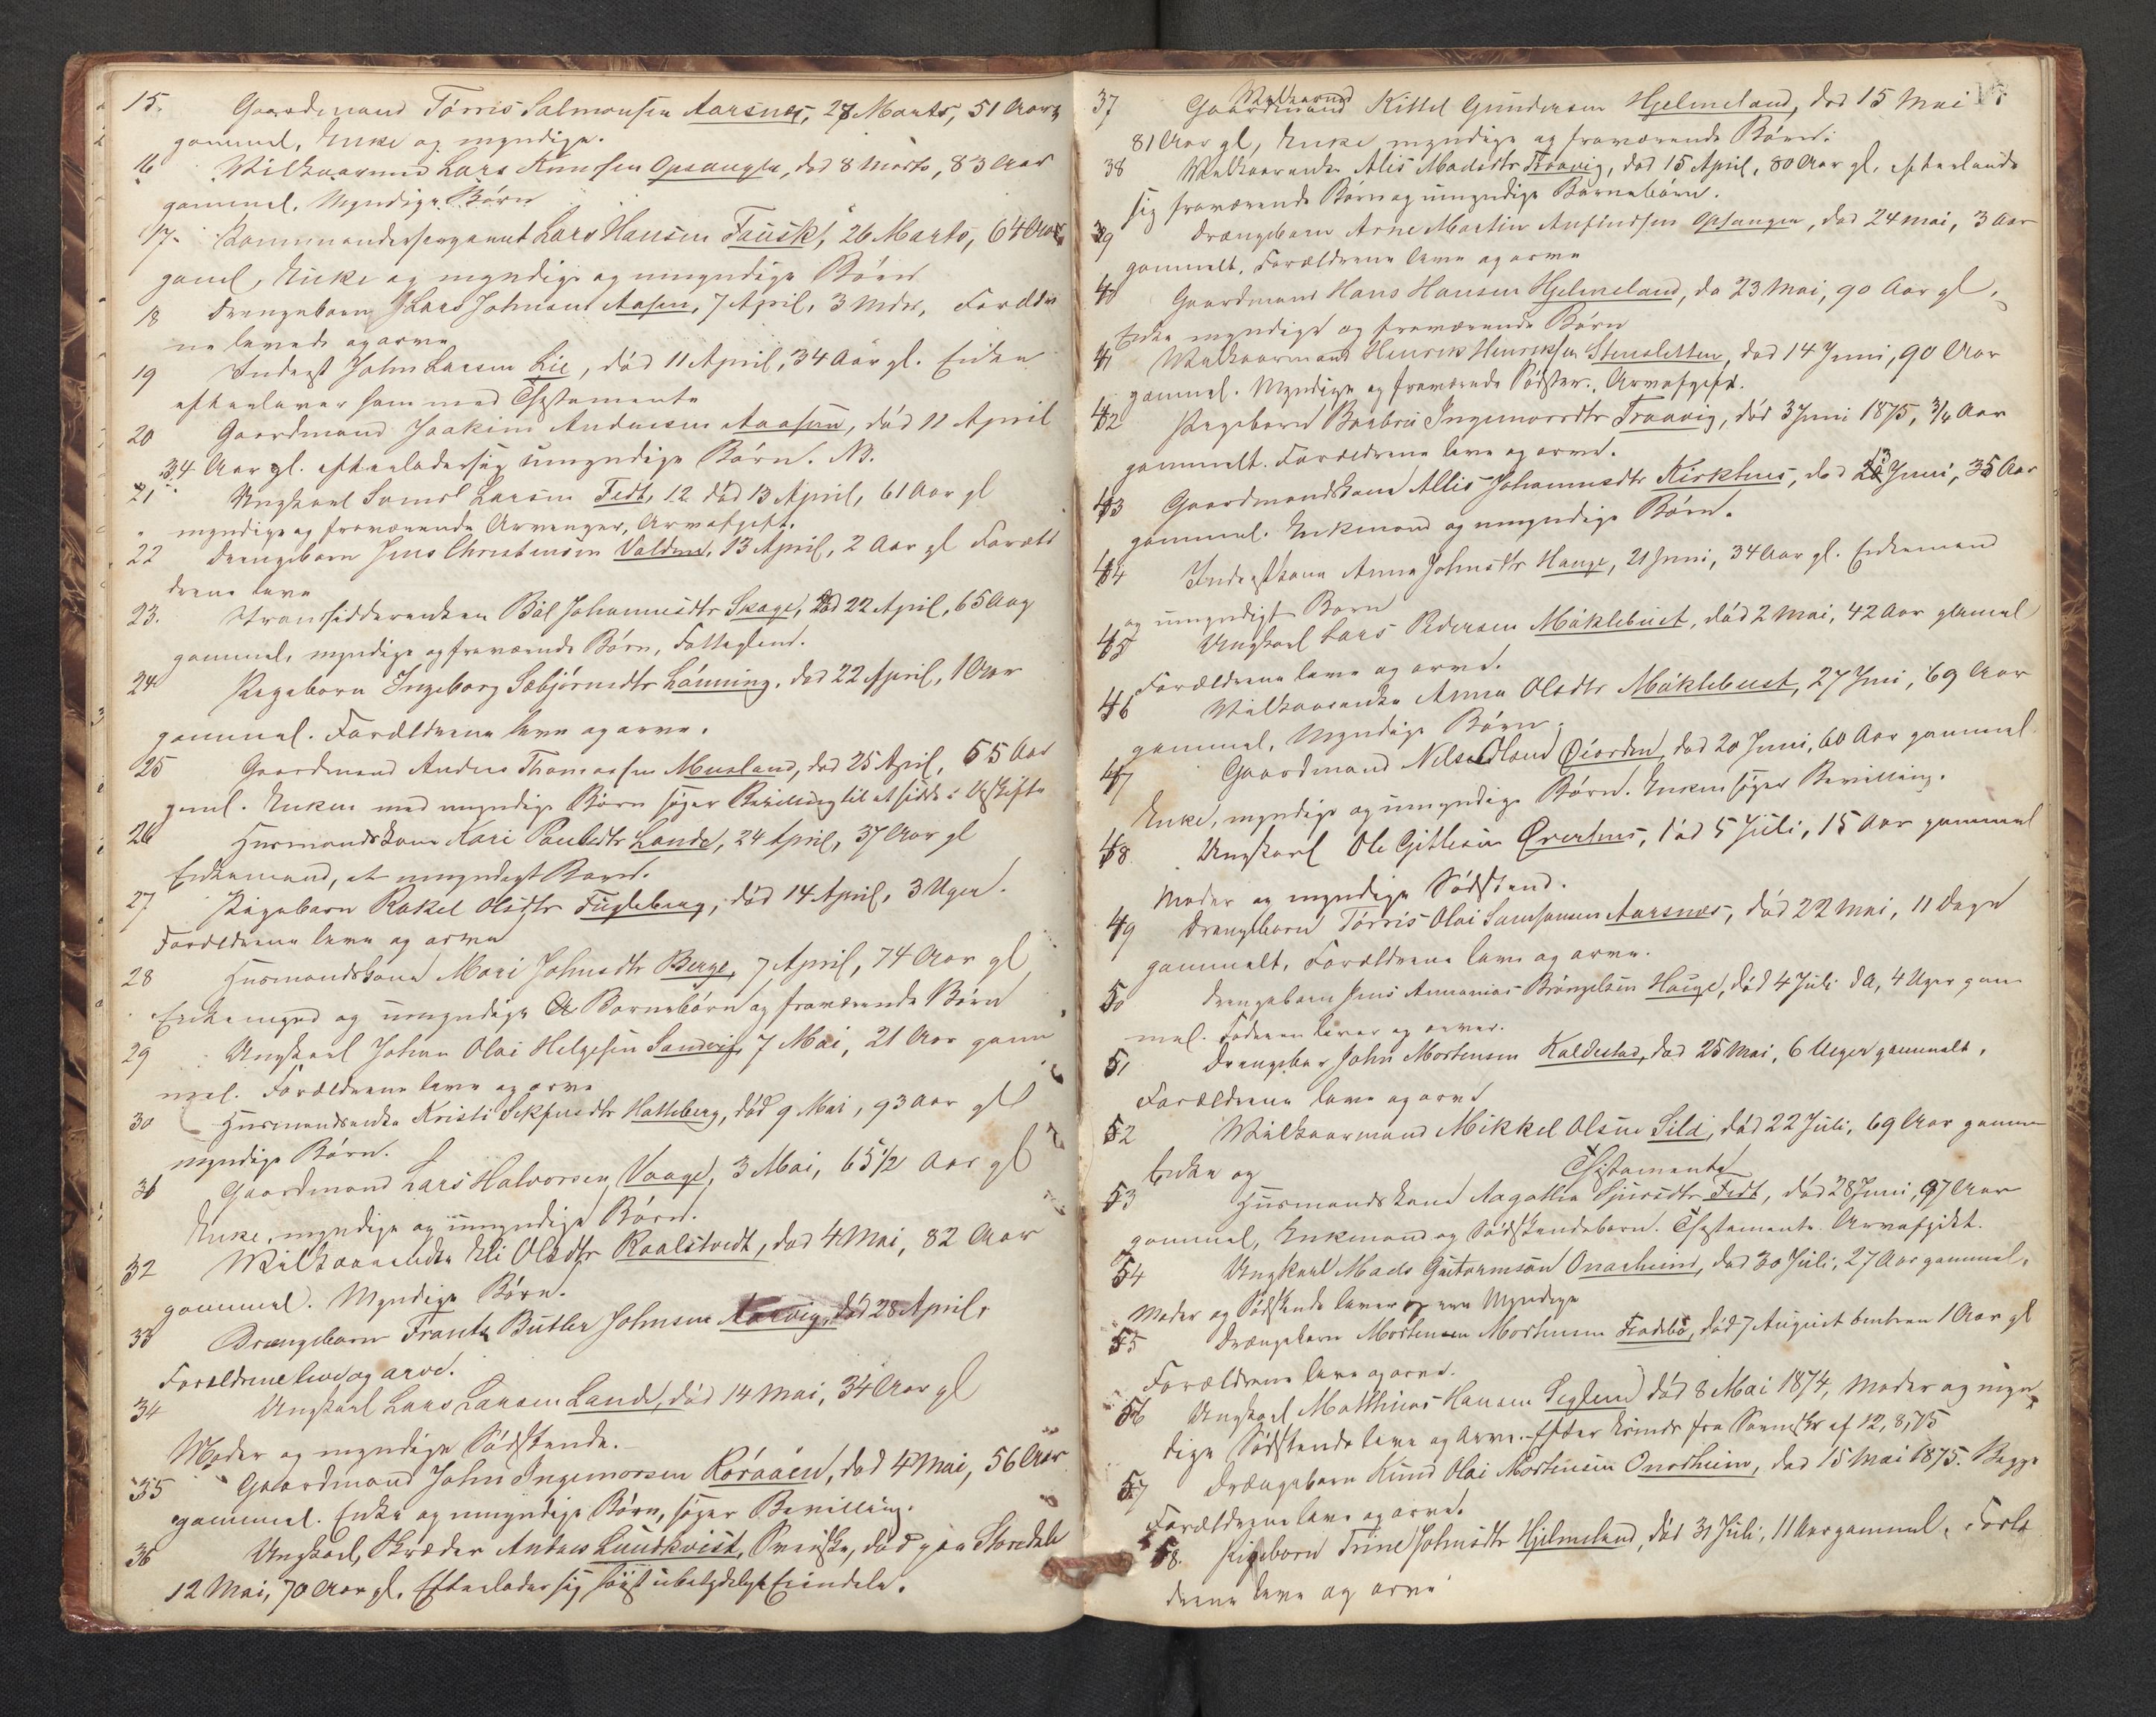 15. Gaardmand Tórris Salmonsen Aarsnes, 27 Marts, 51 Aar
gammel, Enke og myndige.
16 Vilkaarmd Lars Knutsen Opsangen, død 8 Marts, 83 Aar
gammel. Myndige Børn
17. Kommandersergeant Lars Hansen Fausk, 26 Marts, 64 Aar
gaml, Enke og myndige og umyndige Børn
18 Drengebarn Lars Johnsen Aasen, 7 April, 3 Mdr, Foreldre
ne levede og arve
19 Inderst John Larsen Lie, død 11 April, 34 Aar gl. Enken
efterlever ham med Testamente
20 Gaardmand Joakim Andersen Aaasen, død 11 April
34 Aar gl. efterlader sig umyndige Børn. NB.
21 Ungkarl Saml Larsen Fedt, 12 død 13 April, 61 Aar gl
myndige og fraværende Arvinger, Arveafgift.
22 Drengebarn Jens Christensen Valdra, 13 April, 2 Aar gl Foræl
drene leve
23. Strandsidderenken Ból Johannesdtr Skage, død 22 April, 65 Aar
gammel, myndige og fraværende Børn, Fattiglem.
24 Pigebarn Ingeborg Sebjörnsdtr Lönning, død 22 April, 1 Aar
gammel. Forældrene leve og arve.
25 Gaardmand Anders Thomassen Musland, død 25 April, 55 Aar
gaml. Enken med umyndige Børn søger Bevilling til at sidde i Uskifte
26 Husmandskone Kari Poulsdtr Lande, 24 April, 37 Aar gl
Enkemand, et umyndigt Barn.
27 Pigebarn Rakel Olsdtr Fugleberg, død 14 April, 3 Uger.
Forældrene leve og arve
28 Husmandskone Mari Johnsdtr Berge, 7 April, 74 Aar gl
Enkemand og umyndige Børnebørn og fraværende Børn
29 Ungkarl Johan Olai Helgesen Sandvig 7 Mai, 21 Aar gam
mel. Forældrene leve og arve
30 Husmandsenke Kristi Sekhusdtr Hatteberg, død 9 Mai, 93 Aar gl
myndige Børn.
31 Gaardmand Lars Halvorsen Vaage, 3 Mai, 65 1/2 Aar gl
Enke, myndige og umyndige Børn.
32 Vilkaarenke Eli Olsdtr Raalstvedt, død 4 Mai, 82 Aar
gammel. Myndige Børn.
33 Drengebarn Frants Butler Johnsen Aarvig, død 28 April,
Forældrene leve og arve.
34 Ungkarl Lars Larsen Lande, død 14 Mai, 34 Aar gl
Moder og myndige Sødskende.
35 Gaardmand John Ingemorsen Róraaen, død 4 Mai, 56 Aar
gammel. Enke og umyndige Børn, søger Bevilling.
36 Ungkarl, Skræder Anders Lundkvist, Svensk, død paa Storedal
12 Mai, 70 Aar gl. Efterlader sig høist ubetydelige Eiendele.
37 Vilkaarmd
Gaardmand Kittel Gundersen Hjelmeland, død 15 Mai
81 Aar gl, Enke myndige og fraværende Børn.
38 Vilkaarenke Alis Madsdtr Traavig, død 15 April, 80 Aar gl, efterlader
sig fraværende Børn og umyndige Børnebørn.
39 Drengebarn Arne Martin Anfindsen Opsangen, død 24 Mai, 3 Aar
gammelt. Forældrene leve og arve
40 Gaardmand Hans Hansen Hjelmeland, dø 23 Mai, 90 Aar gl.
Enke myndige og fraværende Børn
41 Vilkaarmand Henrik Henriksen Stensletten, død 14 Juni, 90 Aar
gammel. Myndige og fraværende Søster. Arveafgift.
42 Pigebarn Barbro Ingemorsdtr Traavig, død 3 Juni 1875, 3/4 Aar
gammelt. Forældrene leve og arve.
43 Gaardmandskone Allis Johannesdtr Kirkhus, død 13 Juni, 35 Aar
gammel. Enkemand og umyndige Børn.
44 Inderstkone Anna Johnsdtr Hauge, 21 Juni, 34 Aar gl. Enkemand
og umyndigt Barn
45 Ungkarl Lars Pedersen Móklebust, død 2 Mai, 42 Aar glamel
Forældrene leve og arve.
46 Vilkaarenke Anna Olsdtr Móklebust, 27 Juni, 69 Aar
gammel, Myndige Børn.
47 Gaardmand Nels Olsen Øiorden, død 20 Juni, 60 Aar gammel
Enke, myndige og umyndige Børn. Enken søger Bevilling.
48. Ungkarl Ole Gitlesen Øverhus, død 5 Juli, 15 Aar gammel
Moder og myndige Sødskend.
49 Drengebarn Tórris Olai Samsonsen Aarsnes, død 22 Mai, 11 Dage
gammelt, Forældrene leve og arve.
50 Drengebarn Jens Annanias Bryngelsen Hauge, død 4 Juli dA, 4 Uger gam
mel. Faderen lever og arver.
51 Drengebar John Mortensen Kaldestad, død 25 Mai, 6 Uger gammelt.
Forældrene leve og arve
52 Vilkaarmand Mikkel Olsen Sild, død 22 Juli, 69 Aar gamm
Enke og Testamente
53 Husmandskone Aagathe Sjursdtr Fedt, død 28 Juni, 97 Aar
gammel, Enkemand og Sødskendebørn. Testamente. Arveafgift.
54 Ungkarl Mads Guttormson Onarheim, død 30 Juli, 27 Aar gammel.
Moder og Sødskende lever og ere Myndige
55 Drengebarn Mortensen Mortensen Fladebø, død 7 August omtren 1 Aar gl
Forældrene leve og arve.
56 Ungkarl Matthias Hansen Seglem død 8 Mai 1874, Moder og myn
dige Sødskende leve og arve. Efter Erindr fra Sorenskr af 12, 8, 75
57 Drængebarn Knud Olai Mortensen Onarheim, død 15 Mai 1875. Begge
Forældrene leve og arve.
58. Pigebarn Trine Johnsdtr Hjelmeland, død 31 Juli, 11 Aar gammel. Foræl
drene leve og arve